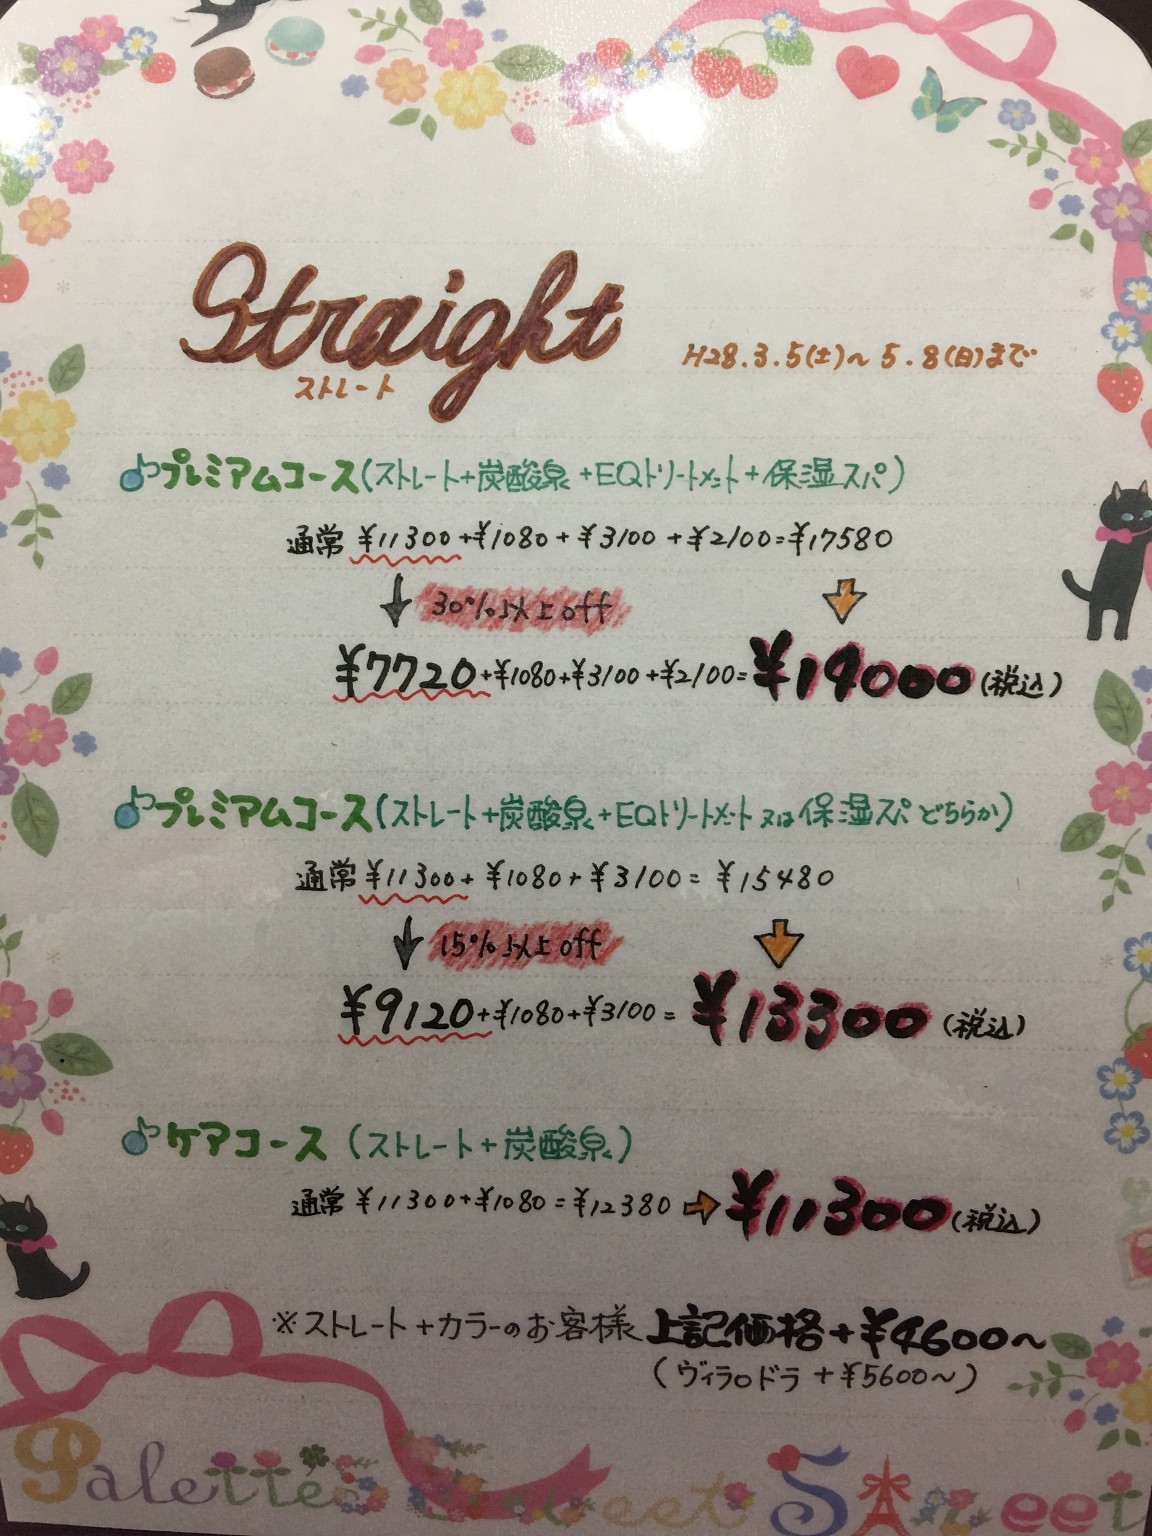 Straight
ストレート
H28.3.5(土)〜5.8(日)まで
プレミアムコース(ストレート+炭酸泉+EQトリートメント+保湿スパ)
通常 ¥11300+¥1080+¥3100+¥2100=¥17580
30%以上off
¥7720+¥1080+¥3100+¥2100=¥14000(税込)
プレミアムコース(ストレート+炭酸泉+EQトリートメント又は保湿スパどちらか)
通常 ¥11300+¥1080+¥3100=¥15480
15%以上off
¥9120+¥1080+¥3100=¥13300(税込)
ケアコース(ストレート+炭酸泉)
通常 ¥11300+¥1080=¥12380⇨¥11300(税込)
※ストレート+カラーのお客様 上記価格+¥4600〜
(ヴィラロドラ+¥5600〜)
Palette's Sweet Street